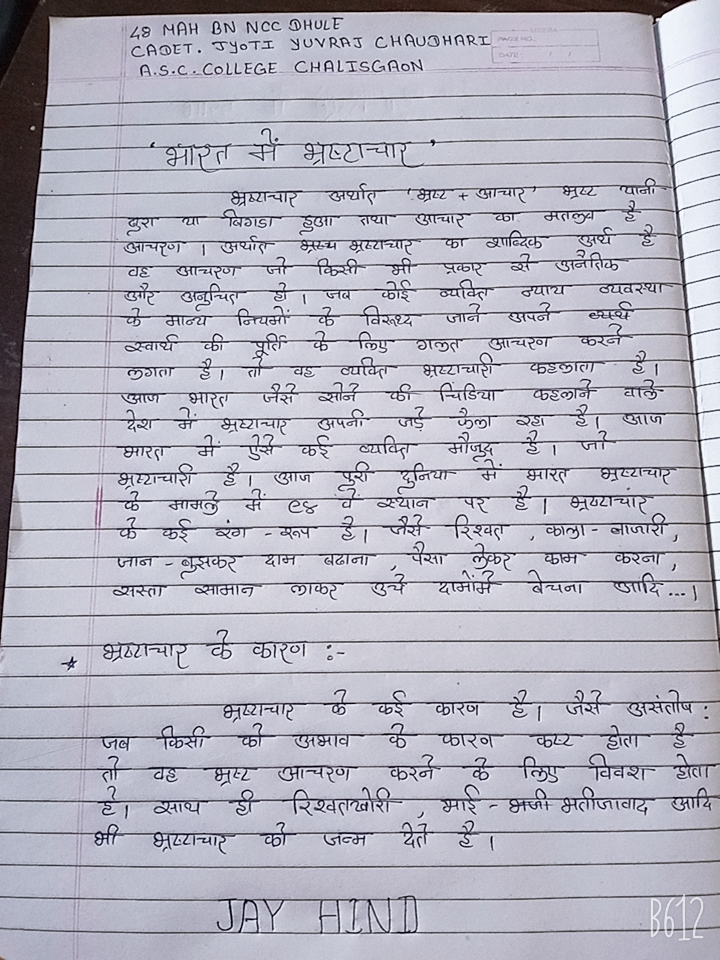 48 MAH BN NCC DHULE
CADET. JYOTI YUVRAJ CHAUDHARI
A.S.C. COLLEGE CHALISGAON
PAGE NO.
DATE: / /
'भारत में भ्रष्टाचार'
भ्रष्टाचार अर्थात 'भ्रष्ट + आचार' भ्रष्ट यानी
बुरा या बिगडा हुआ तथा आचार का मतलब है
आचरण । अर्थात भ्रष्टाचार का शाब्दिक अर्थ है
वह आचरण जो किसी भी प्रकार से अनैतिक
और अनुचित हो । जब कोई व्यक्ति न्याय व्यवस्था
के मान्य नियमों के विरूध्द जाने अपने
स्वार्थ की पूर्ति के लिए गलत आचरण करने
लगता है। तो वह व्यक्ति भ्रष्टाचारी कहलाता है।
आज भारत जैसे सोने की चिडिया कहलाने वाले
देश में भ्रष्टाचार अपनी जडे फैला रहा है। आज
भारत में ऐसे कई व्यक्ति मौजूद है। जो
भ्रष्टाचारी है। आज पुरी दुनिया में भारत भ्रष्टाचार
के मामले में ९४ वे स्थान पर है। भ्रष्टाचार
के कई रंग - रूप है। जैसे रिश्वत , काला - बाजारी ,
जान - बुझकर दाम बढाना , पैसा लेकर काम करना ,
सस्ता सामान लाकर उुचे दामोंमे बेचना आदि ...।
* भ्रष्टाचार के कारण :-
भ्रष्टाचार के कई कारण है। जैसे असंतोष :
जब किसी को अभाव के कारण कष्ट होता है
तो वह भ्रष्ट आचरण करने के लिए विवश होता
है। साथ ही रिश्वतखोरी , भाई - भतीजावाद आदि
भी भ्रष्टाचार को जन्म देते है ।
JAY HIND
B612